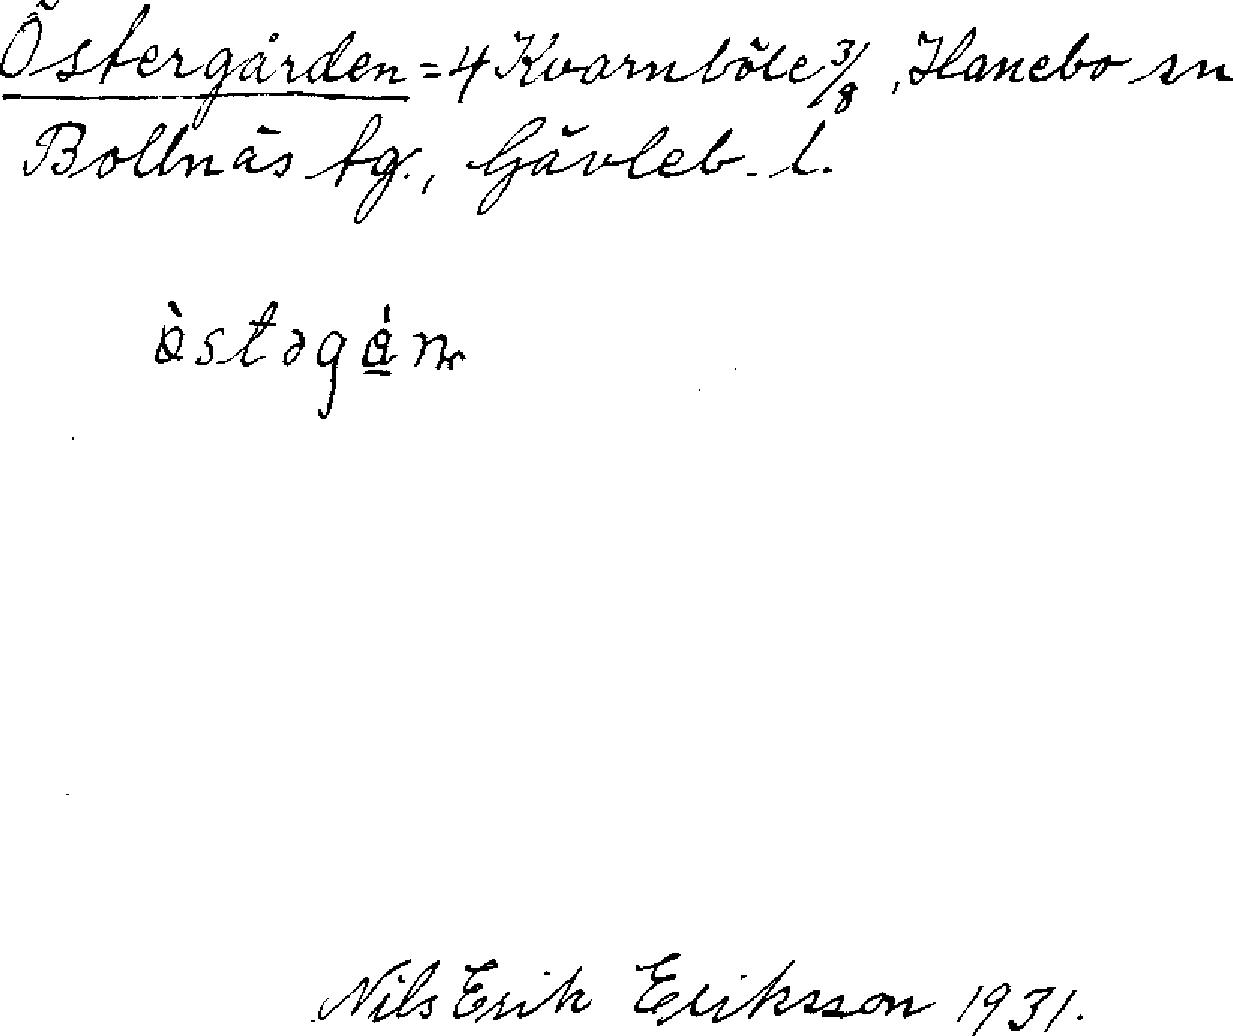 Östergården = 4 Kvarnböle 3/8, Hanebo sn
Bollnäs tg., Gävleb. l.
Nils Erik Eriksson 1931.